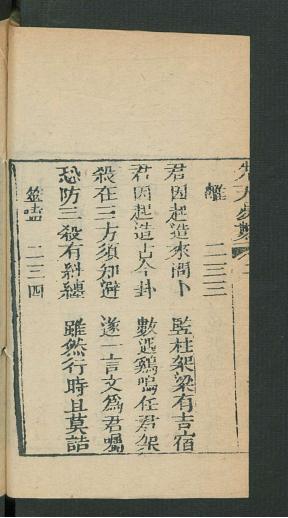 離 二三三
君因起造來問卜 竪柱架梁有吉宿
君因起造占今卦 數遇鷄鳴任君架
殺在三方須知避 遂一言文爲君囑
恐防三殺有糾纏 雖然行時且莫誇
噬嗑 二三四